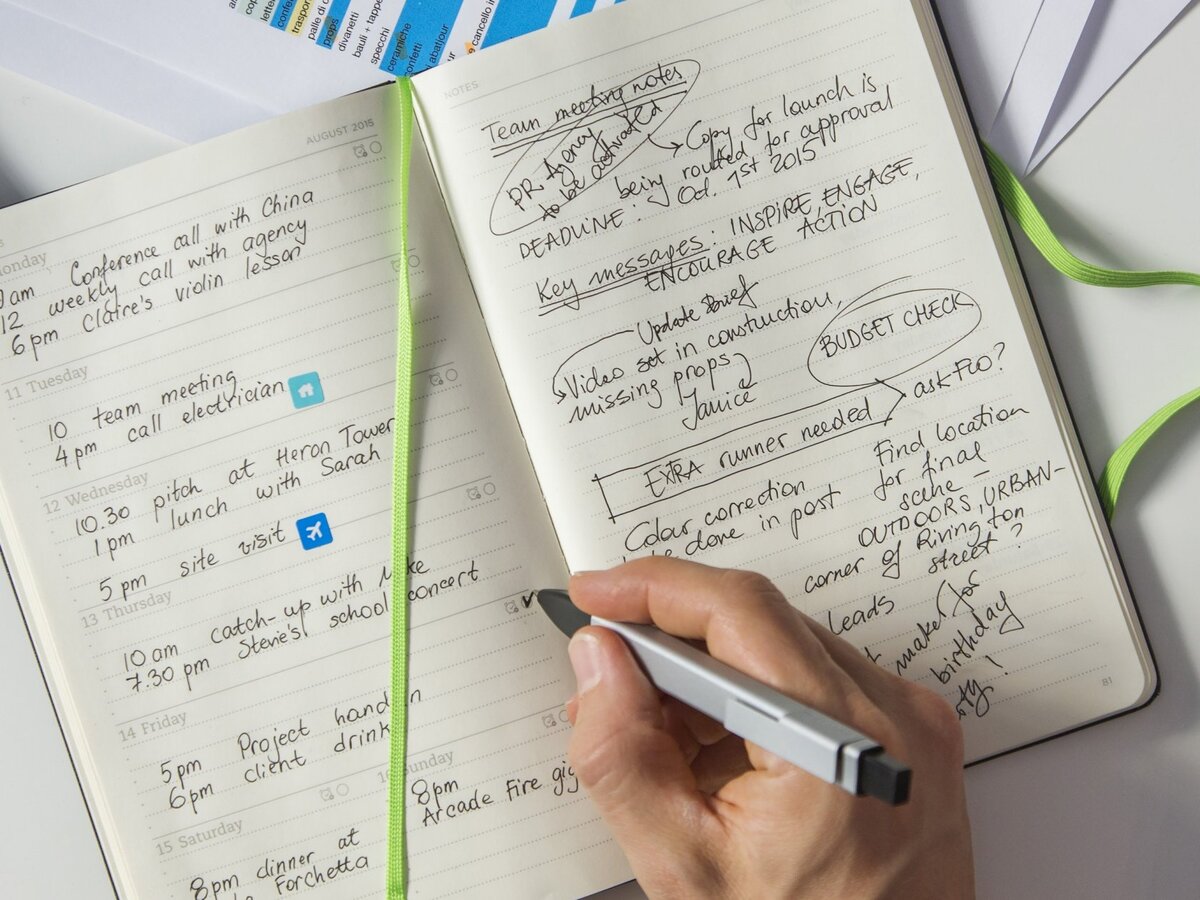 letter
trasporti
palle di
props
divanetti
bauli + tappe
specchi
ceramiche
confetti
abatjour
cancello in
AUGUST 2015
Conference call with China
12 weekly call with agency
6 pm Claire's violin lesson
11 Tuesday
10 team meeting
4 pm call electrician
12 Wednesday
10.30 pitch at Heron Tower
1 pm lunch with Sarah
5 pm site visit
13 Thursday
10 am catch-up with
7.30 pm Steve's school concert
14 Friday
5 pm Project hand in
6 pm client drink
15 Saturday
8 pm dinner at
Forchetta
Sunday
8 pm
Arcade Fire gig
NOTES
Team meeting notes
PR Agency
to be activated
Copy for launch is
being routed for approval
DEADLINE: Oct. 1st 2015
Key messages: INSPIRE ENGAGE,
ENCOURAGE ACTION
Update Brief
Video set in construction,
missing props
Janice
BUDGET CHECK
ask Flo?
EXTRA runner needed
Colour correction
done in post
Find location
for final
scene –
OUTDOORS, URBAN-
corner of Rivington
street?
leads
maker for
birthday
81